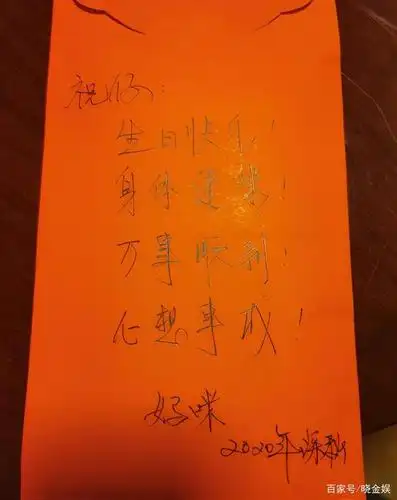 祝你：
生日快乐！
身体健康！
万事顺利！
心想事成！
妈咪
2020年深秋
百家号/晓金娱